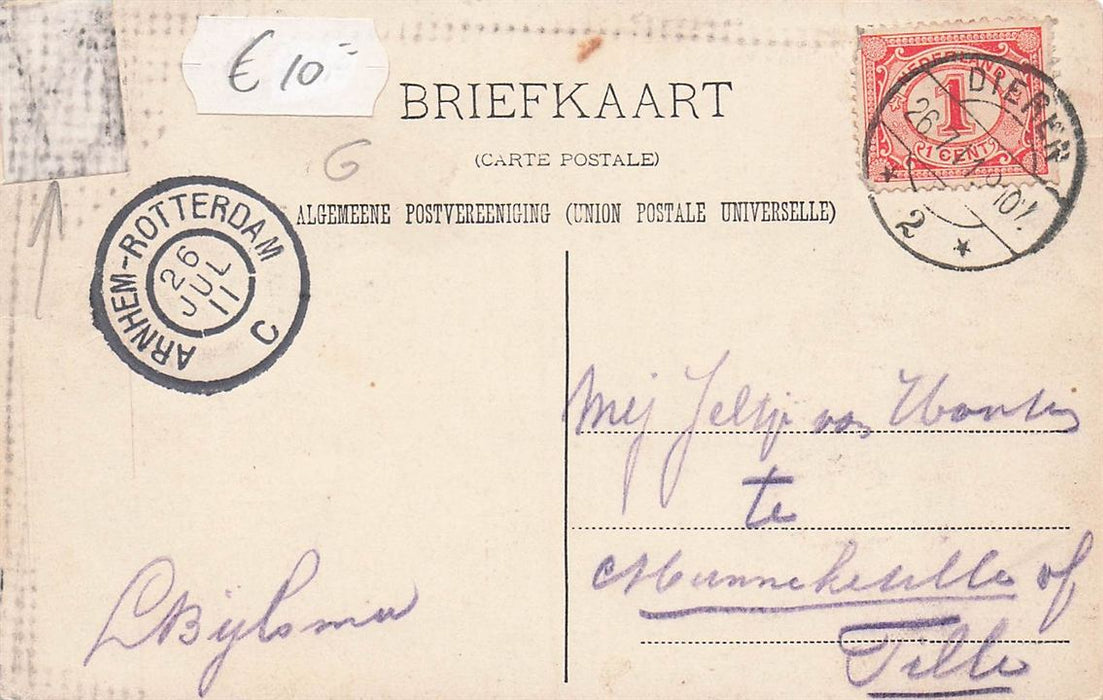 € 10 =
BRIEFKAART
G
(CARTE POSTALE)
ALGEMEENE POSTVEREENIGING (UNION POSTALE UNIVERSELLE)
NEDERLAND
1
1 CENT
DIEREN
26.7.11.10-11V.
2
ARNHEM-ROTTERDAM
26
JUL
11
C
Mej Jeltje van
te
Munnekezille of
Tille
L Bijlsma